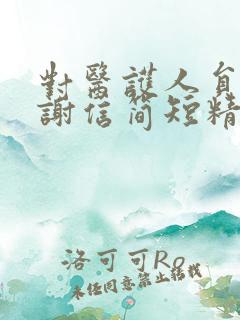 對醫護人員
謝信简短精
洛可可Ro
未经同意禁止转载